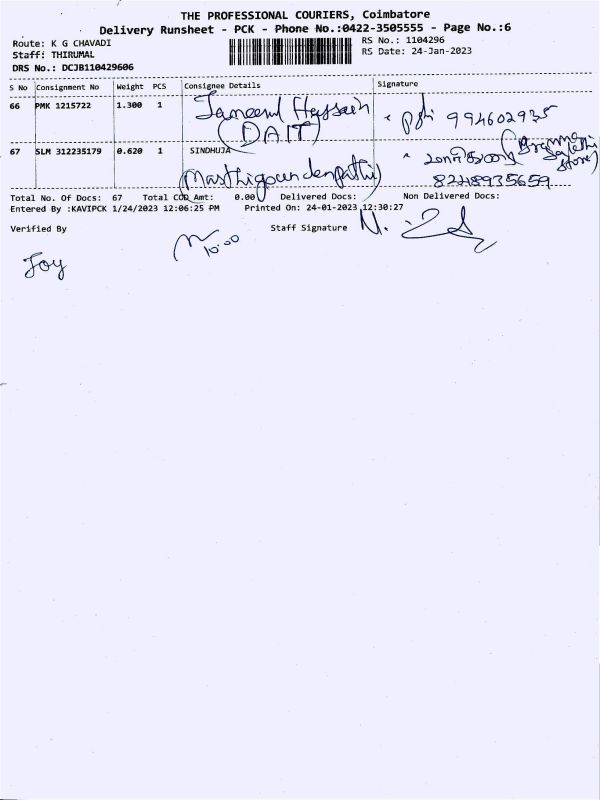 THE PROFESSIONAL COURIERS, Coimbatore
Delivery Runsheet - PCK - Phone No.:0422-3505555 - Page No.:6
Route: K G CHAVADI
Staff: THIRUMAL
DRS No.: DCJB110429606
RS No.: 1104296
RS Date: 24-Jan-2023
S No Consignment No Weight PCS Consignee Details Signature
66 PMK 1215722 1.300 1 Jameenl Hussain
(DAIT)
994602935
67 SLM 312235179 0.620 1 SINDHUJA
(Masthigoundenpathi)
8248935659
Total No. Of Docs: 67 Total COD Amt: 0.00 Delivered Docs: Non Delivered Docs:
Entered By :KAVIPCK 1/24/2023 12:06:25 PM Printed On: 24-01-2023 12:30:27
Verified By Staff Signature
Joy
10:00